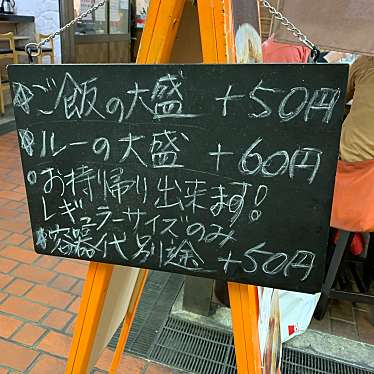 ☆ご飯の大盛 +50円
☆ルーの大盛 +60円
。お持帰り出来ます!
レギュラーサイズのみ
☆容器代別途 +50円